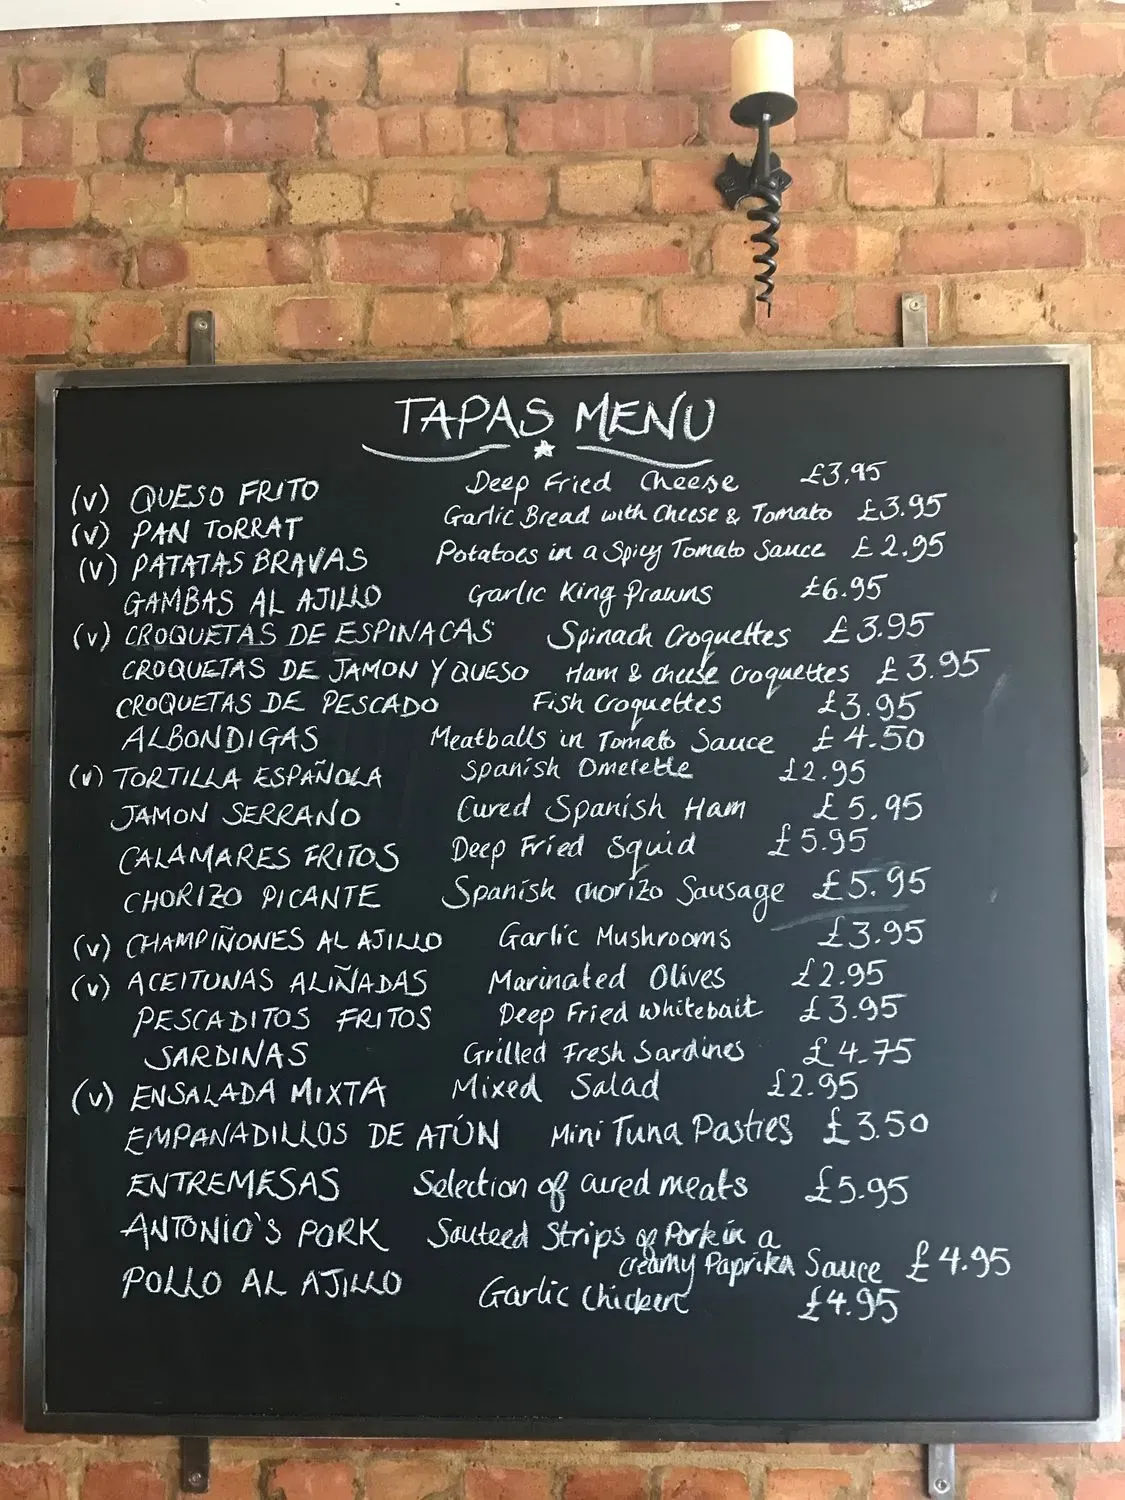 TAPAS MENU
(v) QUESO FRITO Deep Fried Cheese £3.95
(v) PAN TORRAT Garlic Bread with Cheese & Tomato £3.95
(v) PATATAS BRAVAS Potatoes in a Spicy Tomato Sauce £2.95
GAMBAS AL AJILLO Garlic King Prawns £6.95
(v) CROQUETAS DE ESPINACAS Spinach Croquettes £3.95
CROQUETAS DE JAMON Y QUESO Ham & cheese Croquettes £3.95
CROQUETAS DE PESCADO Fish Croquettes £3.95
ALBONDIGAS Meatballs in Tomato Sauce £4.50
(v) TORTILLA ESPAÑOLA Spanish Omelette £2.95
JAMON SERRANO Cured Spanish Ham £5.95
CALAMARES FRITOS Deep Fried Squid £5.95
CHORIZO PICANTE Spanish chorizo Sausage £5.95
(v) CHAMPIÑONES AL AJILLO Garlic Mushrooms £3.95
(v) ACEITUNAS ALIÑADAS Marinated Olives £2.95
PESCADITOS FRITOS Deep Fried Whitebait £3.95
SARDINAS Grilled Fresh Sardines £4.75
(v) ENSALADA MIXTA Mixed Salad £2.95
EMPANADILLOS DE ATÚN Mini Tuna Pasties £3.50
ENTREMESAS Selection of cured meats £5.95
ANTONIO'S PORK Sauteed Strips of Pork in a
creamy Paprika Sauce £4.95
POLLO AL AJILLO Garlic Chicken £4.95